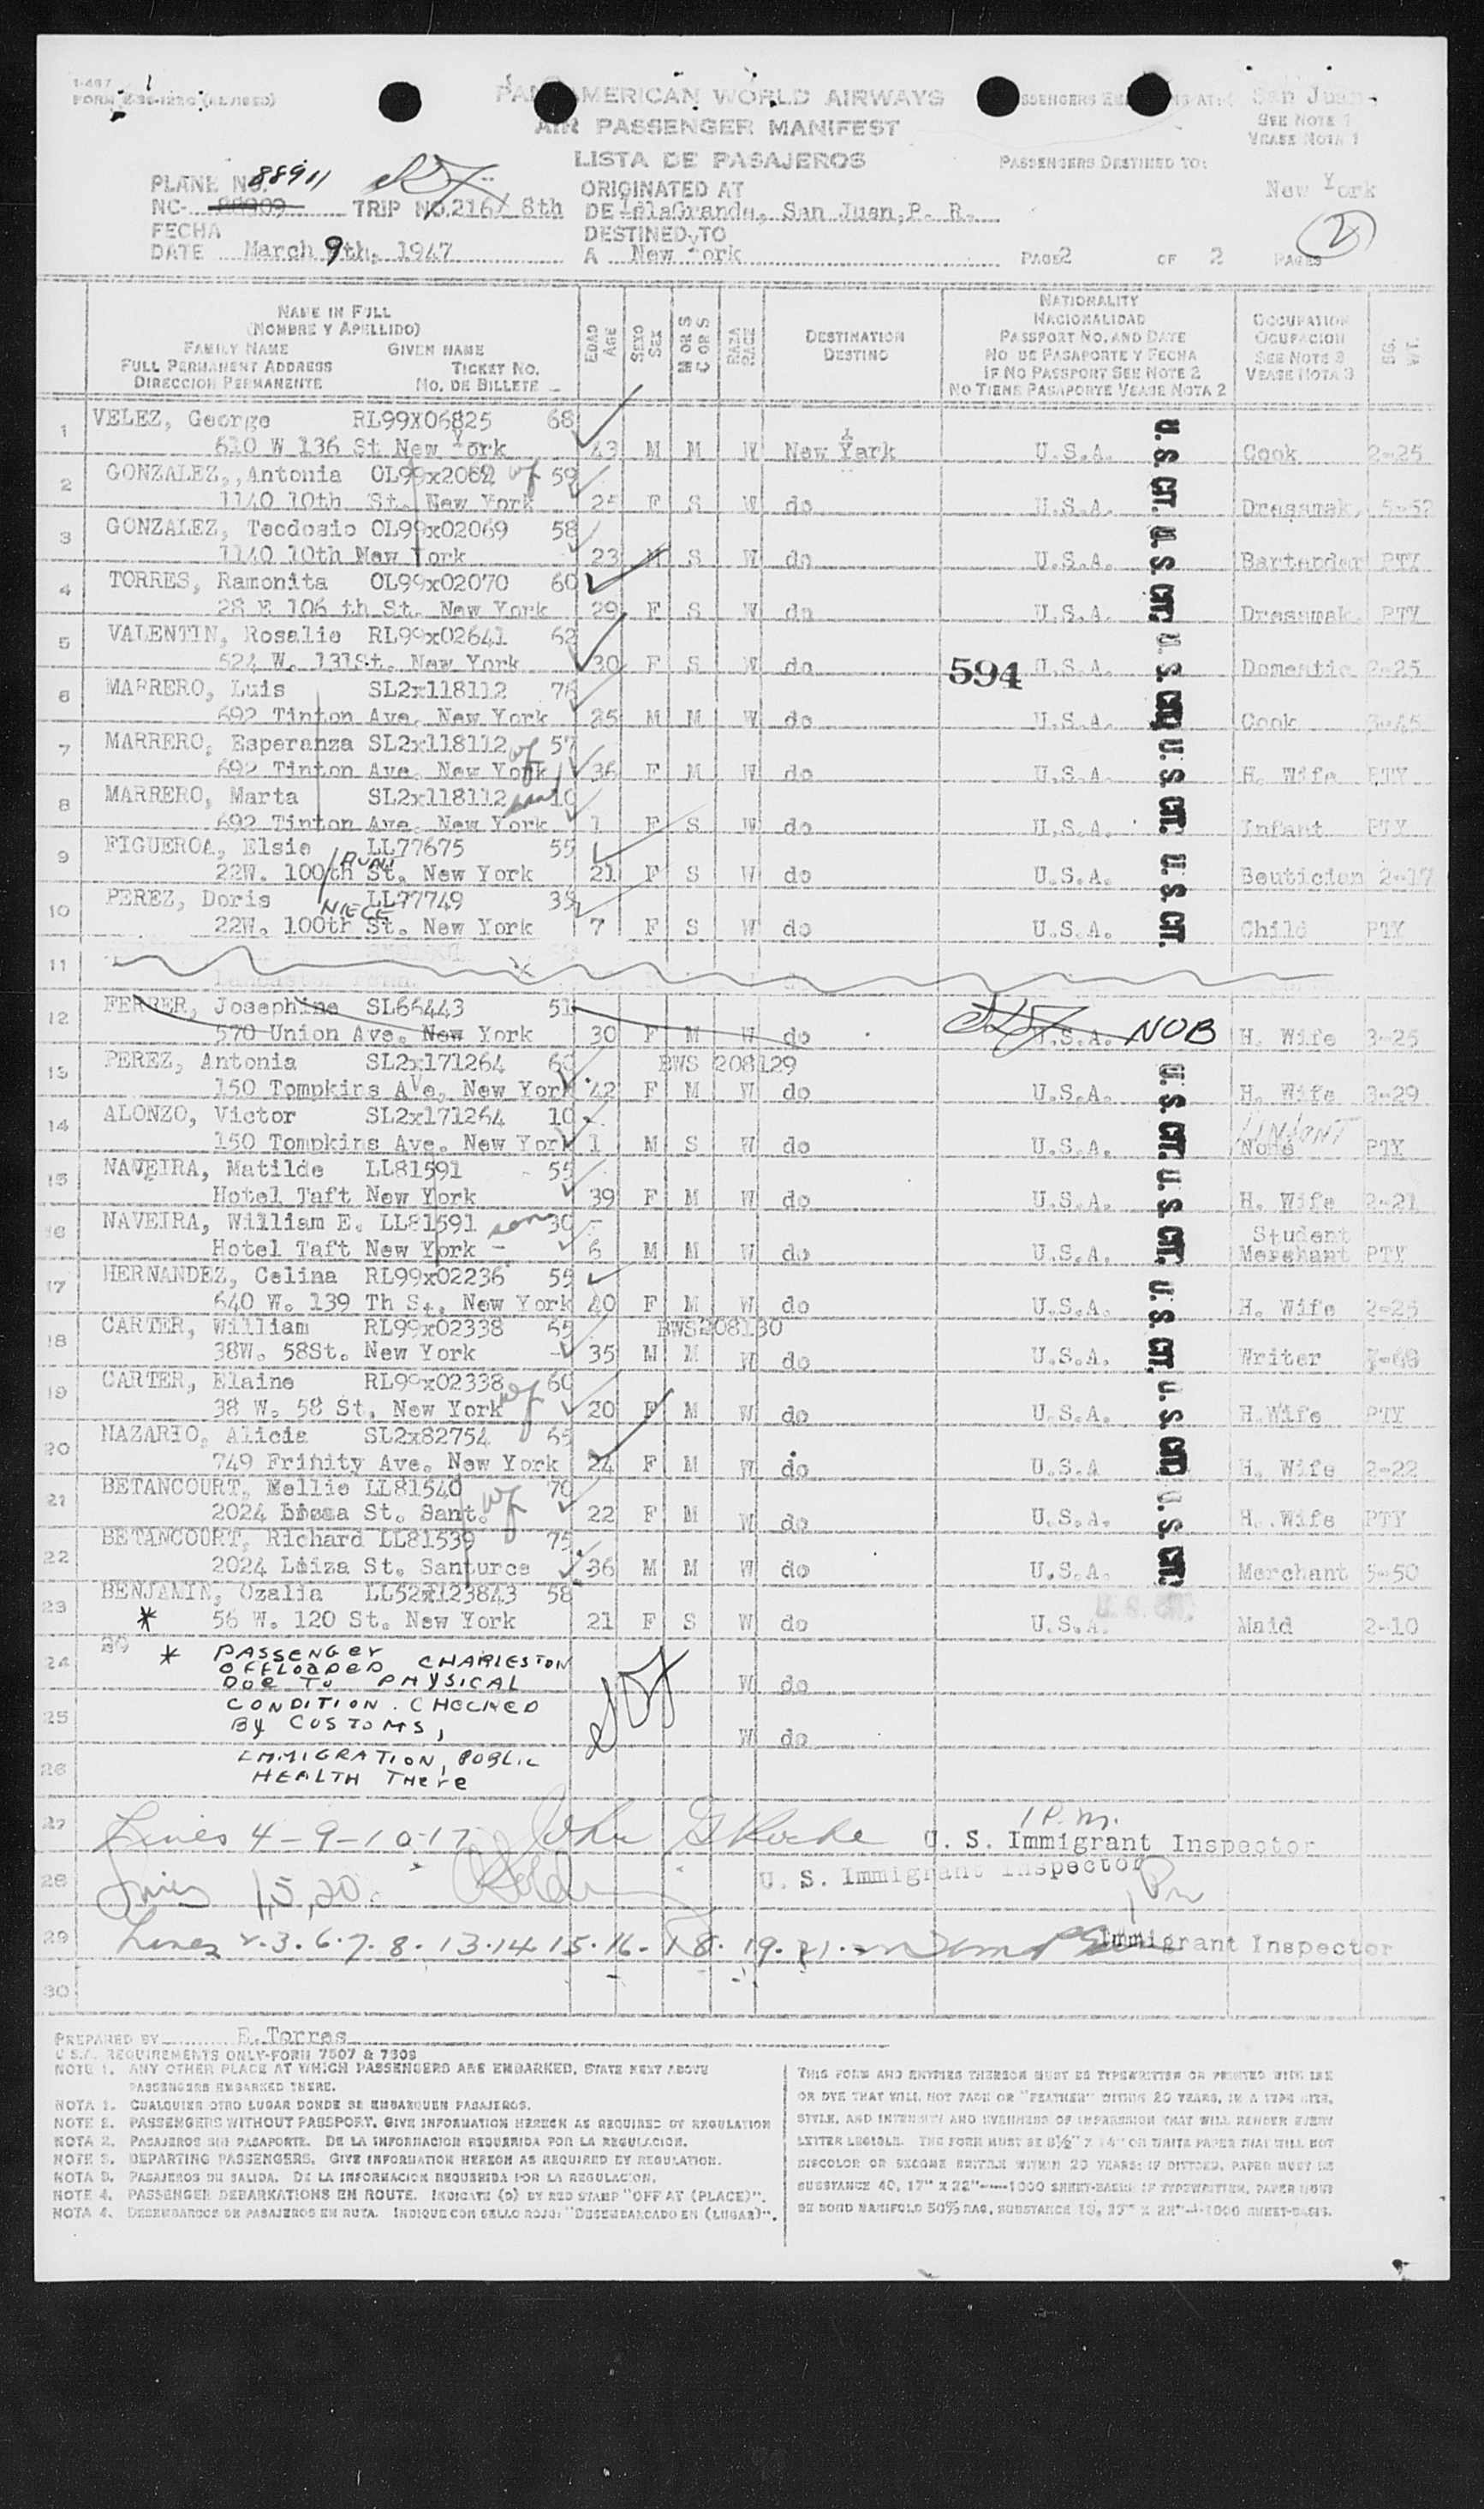 I-487
PAN AMERICAN WORLD AIRWAYS
AIR PASSENGER MANIFEST
LISTA DE PASAJEROS
San Juan
SEE NOTE 1
VEASE NOTA 1
PASSENGERS DESTINED TO:
New York
2
PLANE NO. 88911
NC- 88909 TRIP NO. 216/ 8th
FECHA
DATE March 9th, 1947
ORIGINATED AT
DE IslaGrande, San Juan, P. R.
DESTINED TO
A New York
PAGE 2 OF 2 PAGES
NAME IN FULL
(NOMBRE Y APELLIDO)
FAMILY NAME GIVEN NAME
FULL PERMANENT ADDRESS TICKET NO.
DIRECCION PERMANENTE NO. DE BILLETE
EDAD AGE
SEXO SEX
M OR S C OR S
RAZA RACE
DESTINATION
DESTINO
NATIONALITY
NACIONALIDAD
PASSPORT NO. AND DATE
NO DE PASAPORTE Y FECHA
IF NO PASSPORT SEE NOTE 2
NO TIENE PASAPORTE VEASE NOTA 2
OCCUPATION
OCUPACION
SEE NOTE 3
VEASE NOTA 3
1 VELEZ, George RL99X06825 68
610 W 136 St New York 43 M M W New York U.S.A. Cook 2-25
2 GONZALEZ,,Antonia OL99x2069 wf 59
1140 10th St. New York 25 F S W do U.S.A. Dressmak. 5-52
3 GONZALEZ, Teodosio OL99x02069 58
1140 10th New York 23 M S W do U.S.A. Bartender PTY
4 TORRES, Ramonita OL99x02070 60
28 E 106 th St. New York 29 F S W do U.S.A. Dressmak. PTY
5 VALENTIN, Rosalie RL99x02641 62
524 W. 131St. New York 30 F S W do 594 U.S.A. Domestic 2-25
6 MARRERO, Luis SL2x118112 76
692 Tinton Ave. New York 25 M M W do U.S.A. Cook 3-45
7 MARRERO, Esperanza SL2x118112 wf 57
692 Tinton Ave. New York 36 F M W do U.S.A. H. Wife PTY
8 MARRERO, Marta SL2x118112 10
692 Tinton Ave. New York 1 F S W do U.S.A. Infant PTY
9 FIGUEROA, Elsie LL77675 55
22W. 100th St. New York 21 F S W do U.S.A. Beutician 2-17
AUNT
10 PEREZ, Doris LL77749 38
NIECE
22W. 100th St. New York 7 F S W do U.S.A. Child PTY
11
12 FERRER, Josephine SL66443 51
570 Union Ave. New York 30 F M W do U.S.A. NOB H. Wife 3-25
13 PEREZ, Antonia SL2x171264 60 BWS 208129
150 Tompkins Ave, New York 42 F M W do U.S.A. H. Wife 3-29
14 ALONZO, Victor SL2x171264 10 INFANT
150 Tompkins Ave. New York 1 M S W do U.S.A. None PTY
15 NAVEIRA, Matilde LL81591 55
Hotel Taft New York 39 F M W do U.S.A. H. Wife 2-21
16 NAVEIRA, William E. LL81591 son 30 Student
Hotel Taft New York - 6 M M W do U.S.A. Merchant PTY
17 HERNANDEZ, Celina RL99x02236 55
640 W. 139 Th St. New York 40 F M W do U.S.A. H. Wife 2-25
18 CARTER, William RL99x02338 65 BWS208130
38W. 58St. New York 35 M M W do U.S.A. Writer
19 CARTER, Elaine RL99x02338 wf 60
38 W. 58 St, New York 20 F M W do U.S.A. H.Wife PTY
20 NAZARIO, Alicia SL2x82754 65
749 Frinity Ave. New York 24 F M W do U.S.A H. Wife 2-22
21 BETANCOURT, Nellie LL81540 70
2024 St. Sant. wf 22 F M W do U.S.A. H. Wife PTY
22 BETANCOURT, Richard LL81539 75
2024 Loiza St. Santurce 36 M M W do U.S.A. Merchant 5-50
23 BENJAMIN, Ozalia LL52x123843 58
* 56 W. 120 St. New York 21 F S W do U.S.A. Maid 2-10
U.S. CIT. U.S. CIT. U.S. CIT. U.S. CIT. U.S. CIT. U.S. CIT.
24 * PASSENGER
OFFLOADED CHARLESTON
DUE TO PHYSICAL W do
CONDITION. CHECKED
25 BY CUSTOMS, W do
26 IMMIGRATION, PUBLIC
HEALTH THERE
27 Lines 4-9-10-17 1 P.M. U. S. Immigrant Inspector
28 Lines 1,5,20 U. S. Immigrant Inspector
29 Lines 2.3.6.7.8.13.14.15.16.18.19.21. Immigrant Inspector
30
PREPARED BY E. Torres
U.S.A. REQUIREMENTS ONLY-FORM 7507 & 7509
NOTE 1. ANY OTHER PLACE AT WHICH PASSENGERS ARE EMBARKED, STATE NEXT ABOVE
PASSENGERS EMBARKED THERE.
NOTA 1. CUALQUIER OTRO LUGAR DONDE SE EMBARQUEN PASAJEROS.
NOTE 2. PASSENGERS WITHOUT PASSPORT. GIVE INFORMATION HEREON AS REQUIRED BY REGULATION
NOTA 2. PASAJEROS SIN PASAPORTE. DE LA INFORMACION REQUERIDA POR LA REGULACION.
NOTE 3. DEPARTING PASSENGERS. GIVE INFORMATION HEREON AS REQUIRED BY REGULATION.
NOTA 3. PASAJEROS DE SALIDA. DE LA INFORMACION REQUERIDA POR LA REGULACION.
NOTE 4. PASSENGER DEBARKATIONS EN ROUTE. INDICATE (D) BY RED STAMP "OFF AT (PLACE)".
NOTA 4. DESEMBARCOS DE PASAJEROS EN RUTA. INDIQUE CON SELLO ROJO: "DESEMBARCADO EN (LUGAR)".
THIS FORM AND ENTRIES THEREON MUST BE TYPEWRITTEN OR PRINTED WITH INK
OR DYE THAT WILL NOT FADE OR "FEATHER" WITHIN 20 YEARS, IN A TYPE SIZE,
STYLE, AND INTENSITY AND EVENNESS OF IMPRESSION THAT WILL RENDER EVERY
LETTER LEGIBLE. THE FORM MUST BE 8½" X 14" ON WHITE PAPER THAT WILL NOT
DISCOLOR OR BECOME BRITTLE WITHIN 20 YEARS; IF DITTOED, PAPER MUST BE
SUBSTANCE 40, 17" X 22"—1000 SHEET-BASIS; IF TYPEWRITTEN, PAPER MUST
BE BOND MANIFOLD 50% RAG, SUBSTANCE 18, 17" X 22"—1000 SHEET-BASIS.